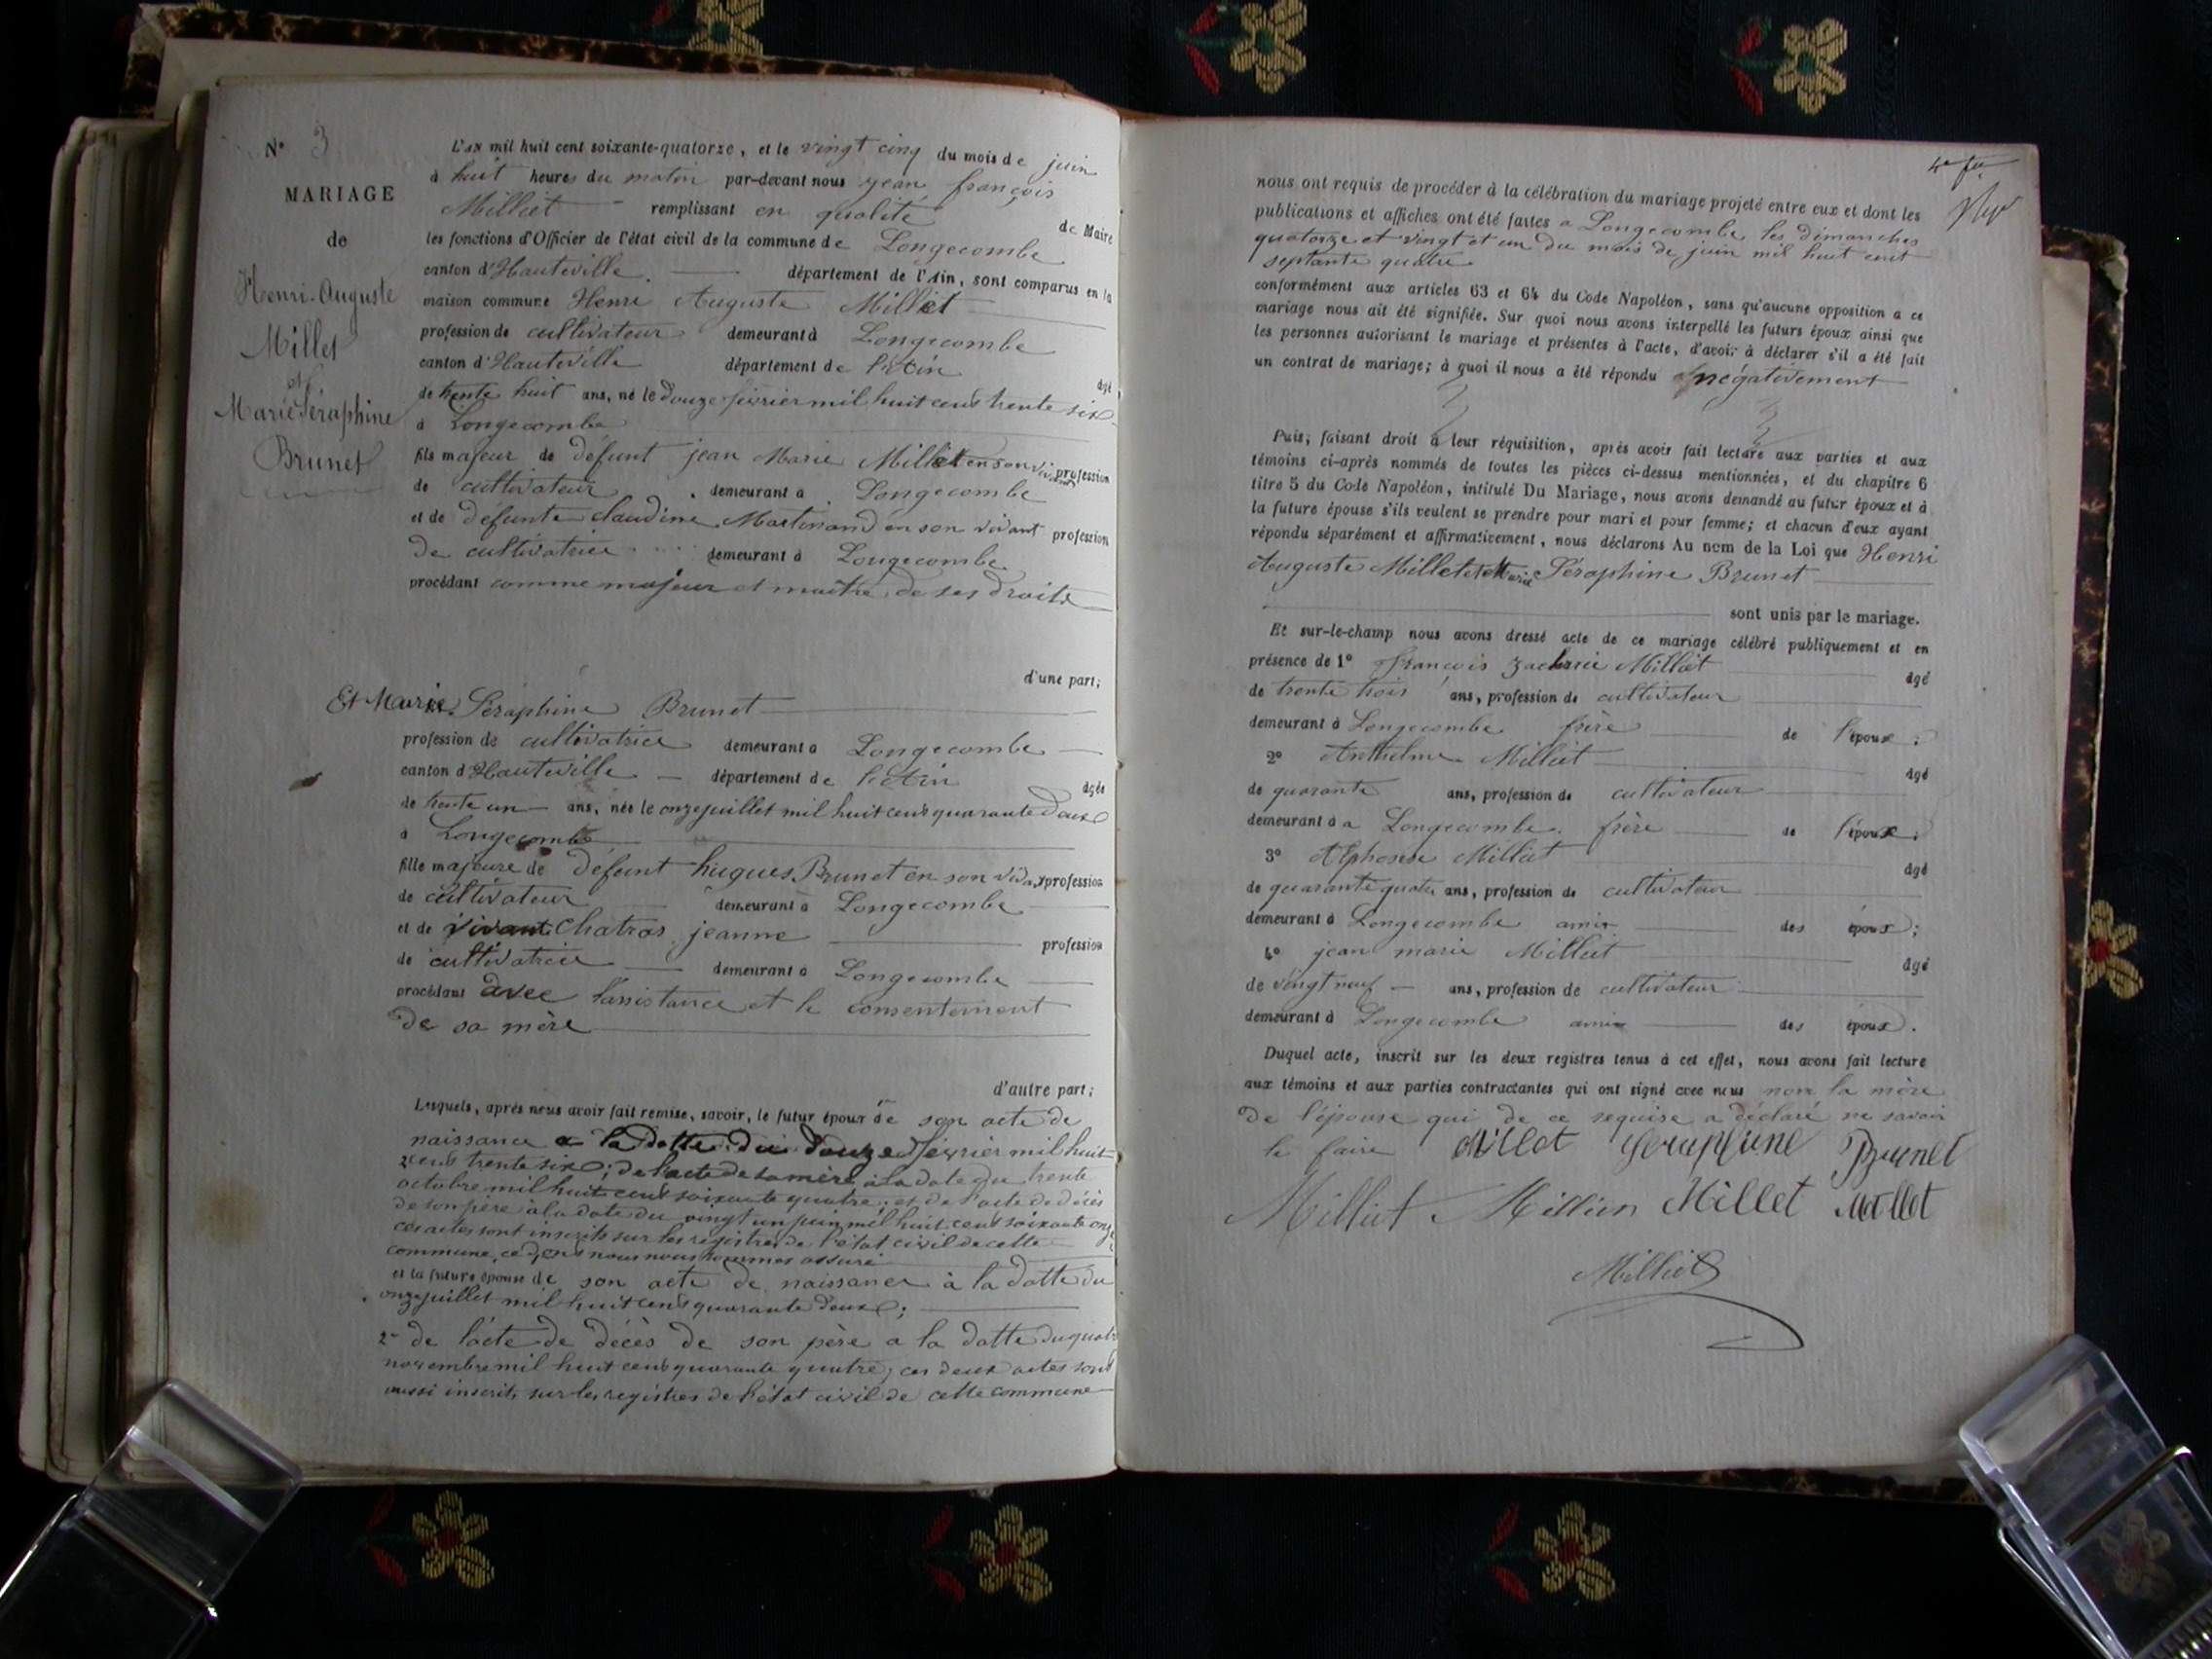 N° 3
MARIAGE
de
Henri-Auguste
Millet
et
Marie Séraphine
Brunet
L'AN mil huit cent soixante-quatorze, et le vingt cinq du mois de juin
à huit heures du matin par-devant nous jean françois
Milliet remplissant en qualité de Maire
les fonctions d'Officier de l'état civil de la commune de Longecombe
canton d'Hauteville département de l'Ain, sont comparus en la
maison commune Henri Auguste Millet
profession de cultivateur demeurant à Longecombe
canton d'Hauteville département de l'Ain âgé
de trente huit ans, né le douze février mil huit cent trente six
à Longecombe
fils majeur de défunt jean Marie Millet en son vivant profession
de cultivateur demeurant à Longecombe
et de défunte claudine Martinand en son vivant profession
de cultivatrice demeurant à Longecombe
procédant comme majeur et maitre de ses droits
d'une part;
Et Marie Séraphine Brunet
profession de cultivatrice demeurant à Longecombe
canton d'Hauteville département de l'Ain âgée
de trente un ans, née le onze juillet mil huit cent quarante deux
à Longecombe
fille majeure de défunt hugues Brunet en son vivant profession
de cultivateur demeurant à Longecombe
et de vivante Chatras jeanne profession
de cultivatrice demeurant à Longecombe
procédant avec l'assistance et le consentement
de sa mère
d'autre part;
Lesquels, après nous avoir fait remise, savoir, le futur époux de son acte de
naissance a la datte du douze février mil huit
cent trente six; de l'acte de sa mère à la date du trente
octobre mil huit cent soixante quatre; et de l'acte de décès
de son père à la date du vingt un juin mil huit cent soixante onze
ces actes sont inscrits sur les registres de l'état civil de cette
commune, ce dont nous nous sommes assuré
et la future épouse de son acte de naissance à la datte du
onze juillet mil huit cent quarante deux;
2° de l'acte de décès de son père a la datte du quatre
novembre mil huit cent quarante quatre; ces deux actes sont
aussi inscrits sur les registres de l'état civil de cette commune
nous ont requis de procéder à la célébration du mariage projeté entre eux et dont les
publications et affiches ont été faites a Longecombe les dimanches
quatorze et vingt et un du mois de juin mil huit cent
septante quatre
conformément aux articles 63 et 64 du Code Napoléon, sans qu'aucune opposition a ce
mariage nous ait été signifiée. Sur quoi nous avons interpellé les futurs époux ainsi que
les personnes autorisant le mariage et présentes à l'acte, d'avoir à déclarer s'il a été fait
un contrat de mariage; à quoi il nous a été répondu négativement
Puis, faisant droit à leur réquisition, après avoir fait lecture aux parties et aux
témoins ci-après nommés de toutes les pièces ci-dessus mentionnées, et du chapitre 6
titre 5 du Code Napoléon, intitulé Du Mariage, nous avons demandé au futur époux et à
la future épouse s'ils veulent se prendre pour mari et pour femme; et chacun d'eux ayant
répondu séparément et affirmativement, nous déclarons Au nom de la Loi que Henri
Auguste Millet et Marie Séraphine Brunet
sont unis par le mariage.
Et sur-le-champ nous avons dressé acte de ce mariage célébré publiquement et en
présence de 1° françois zacharie Milliet âgé
de trente trois ans, profession de cultivateur
demeurant à Longecombe frère de l'époux;
2° Anthelme Milliet âgé
de quarante ans, profession de cultivateur
demeurant à a Longecombe frère de l'époux;
3° Alphonse Milliet âgé
de quarante quatre ans, profession de cultivateur
demeurant à Longecombe ami des époux;
4° jean marie Milliet âgé
de vingt neuf ans, profession de cultivateur
demeurant à Longecombe ami des époux.
Duquel acte, inscrit sur les deux registres tenus à cet effet, nous avons fait lecture
aux témoins et aux parties contractantes qui ont signé avec nous non la mère
de l'épouse qui de ce requise a déclaré ne savoir
le faire Millet Séraphine Brunet
Milliet Millien Millet Millet
Milliet